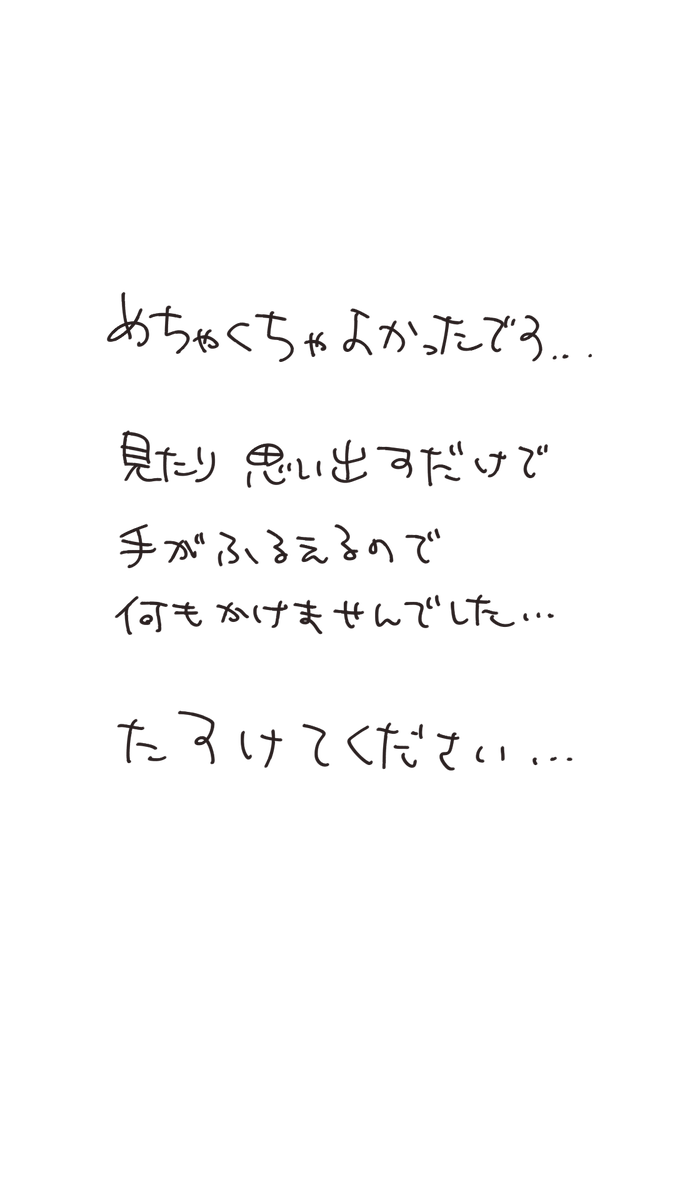 めちゃくちゃよかったです...
見たり 思い出すだけで
手がふるえるので
何もかけませんでした...
たすけてください...